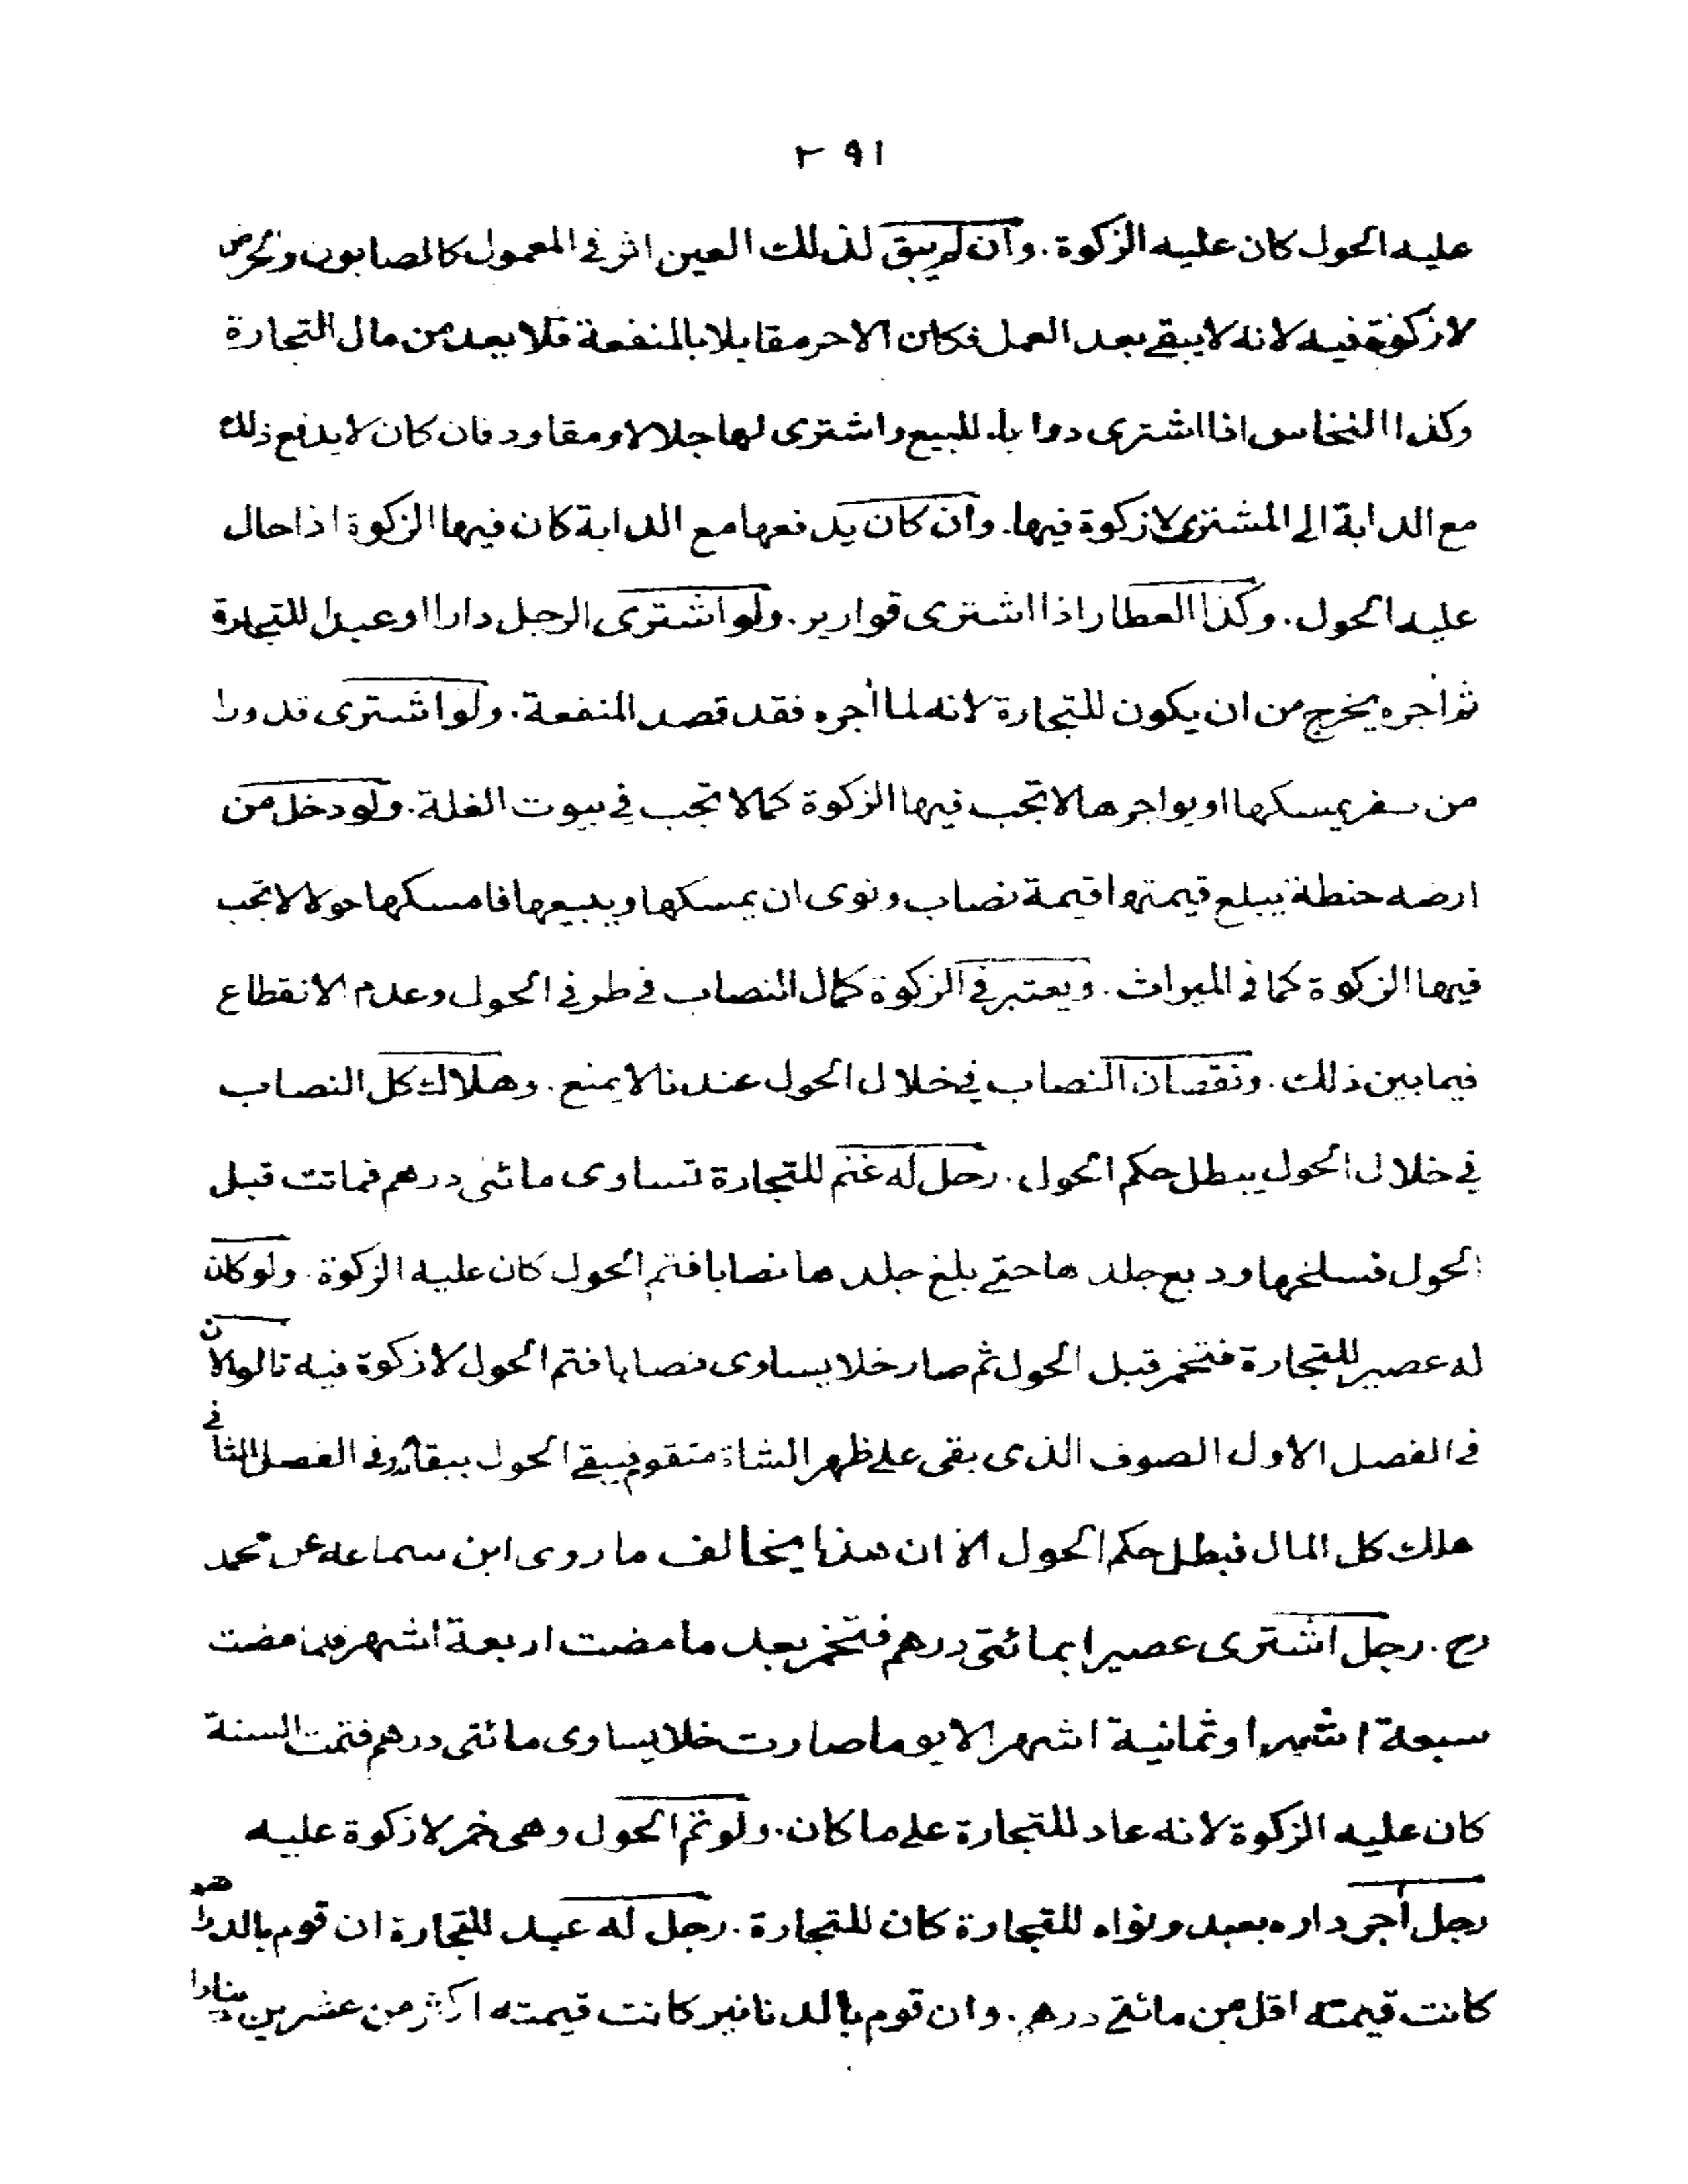 ٢٩١
عليه الحول كان عليه الزكوة . وان لم يبق لذلك العين اثر في المعمول كالصابون والحرض
لا زكوة فيه لانه لا يبقى بعد العمل فكان الاجر مقابلا بالمنفعة فلا يعد من مال التجارة
وكذا النخاس اذا اشترى دوابا للبيع واشترى لها جلالا ومقاود فان كان لا يدفع ذلك
مع الدابة الى المشتري لا زكوة فيها . وان كان يدفعها مع الدابة كان فيها الزكوة اذا حال
عليه الحول . وكذا العطار اذا اشترى قوارير . ولو اشترى الرجل دارا او عبدا للتجارة
ثم أجره يخرج من ان يكون للتجارة لانه لما أجره فقد قصد المنفعة . ولو اشترى قدورا
من صفر يمسكها او يواجرها لا تجب فيها الزكوة كما لا تجب في بيوت الغلة . ولو دخل من
ارضه حنطة يبلغ قيمتها قيمة نصاب ونوى ان يمسكها ويبيعها فامسكها حولا لا تجب
فيها الزكوة كما في الميراث . ويعتبر في الزكوة كمال النصاب في طرفي الحول وعدم الانقطاع
فيما بين ذلك . ونقصان النصاب في خلال الحول عندنا لا يمنع . وهلاك كل النصاب
في خلال الحول يبطل حكم الحول . رجل له غنم للتجارة تساوى مائتى درهم فماتت قبل
الحول فسلخها ودبغ جلدها حتى بلغ جلدها نصابا فتم الحول كان عليه الزكوة . ولو كان
له عصير للتجارة فتخمر قبل الحول ثم صار خلا يساوى نصابا فتم الحول لا زكوة فيه قالوا لان
في الفصل الاول الصوف الذى بقى على ظهر الشاة متقوم فيبقى الحول ببقائه وفي الفصل الثاني
هلك كل المال فبطل حكم الحول الا ان هذا يخالف ما روى ابن سماعه عن محمد
رح . رجل اشترى عصيرا بمائتى درهم فتخمر بعد ما مضت اربعة اشهر فلما مضت
سبعة اشهر او ثمانية اشهر الا يوما صارت خلا يساوى مائتى درهم فتمت السنة
كان عليه الزكوة لانه عاد للتجارة على ما كان . ولو تم الحول وهى خمر لا زكوة عليه
رجل أجر داره بعبد ونواه للتجارة كان للتجارة . رجل له عبد للتجارة ان قوم بالدراهم
كانت قيمته اقل من مائتى درهم . وان قوم بالدنانير كانت قيمته اكثر من عشرين دينارا